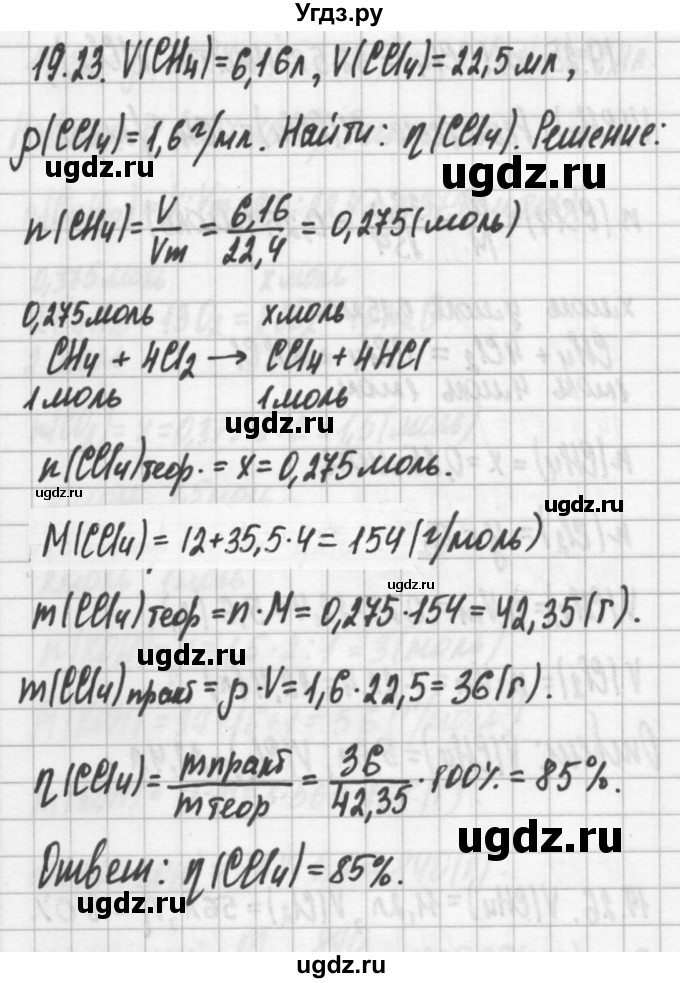 Угдз.ру
19.23. V(CH₄)=6,16л, V(CCl₄)=22,5мл,
ρ(CCl₄)=1,6г/мл. Найти: η(CCl₄). Решение:
ugdz.ru ugdz.ru
n(CH₄)=V/Vm = 6,16/22,4 = 0,275(моль)
0,275моль xмоль
CH₄ + 4Cl₂ → CCl₄ + 4HCl
1моль 1моль
ugdz.ru
n(CCl₄)теор. = x = 0,275моль.
ugdz.ru ugdz.ru
M(CCl₄) = 12+35,5·4 = 154(г/моль)
ugdz.ru
m(CCl₄)теор = n·M = 0,275·154 = 42,35(г).
ugdz.ru
m(CCl₄)практ = ρ·V = 1,6·22,5 = 36(г).
η(CCl₄) = mпракт/mтеор = 36/42,35·100% = 85%.
ugdz.ru
Ответ: η(CCl₄) = 85%.
ugdz.ru
ugdz.ru
ugdz.ru